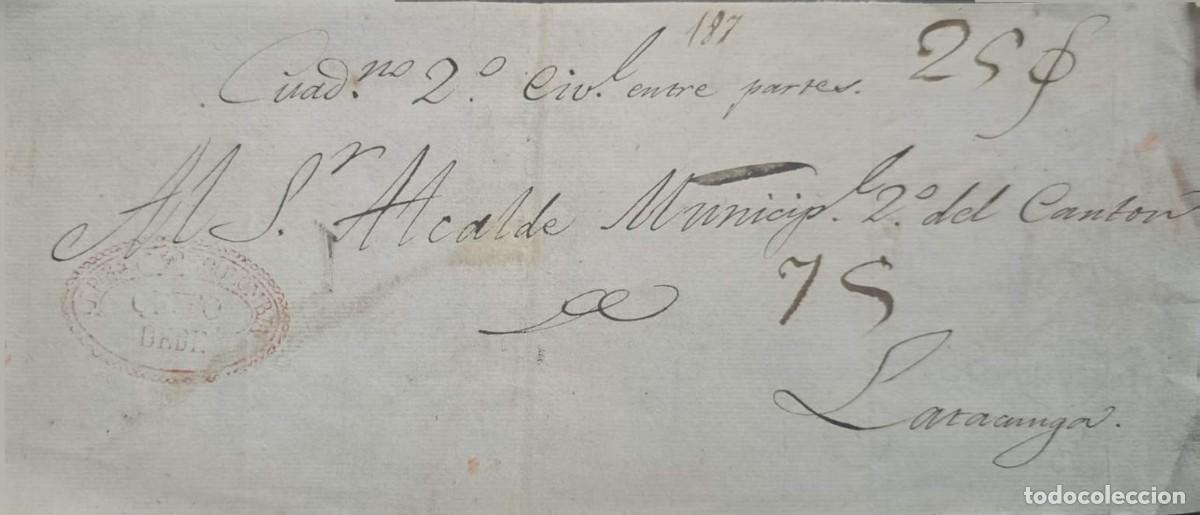 187
Cuad.no 2.o Civ.l entre partes. 25
Al S.r Alcalde Municip.l 2.o del Canton
QUITO
DEBE
75
Latacunga.
todocoleccion